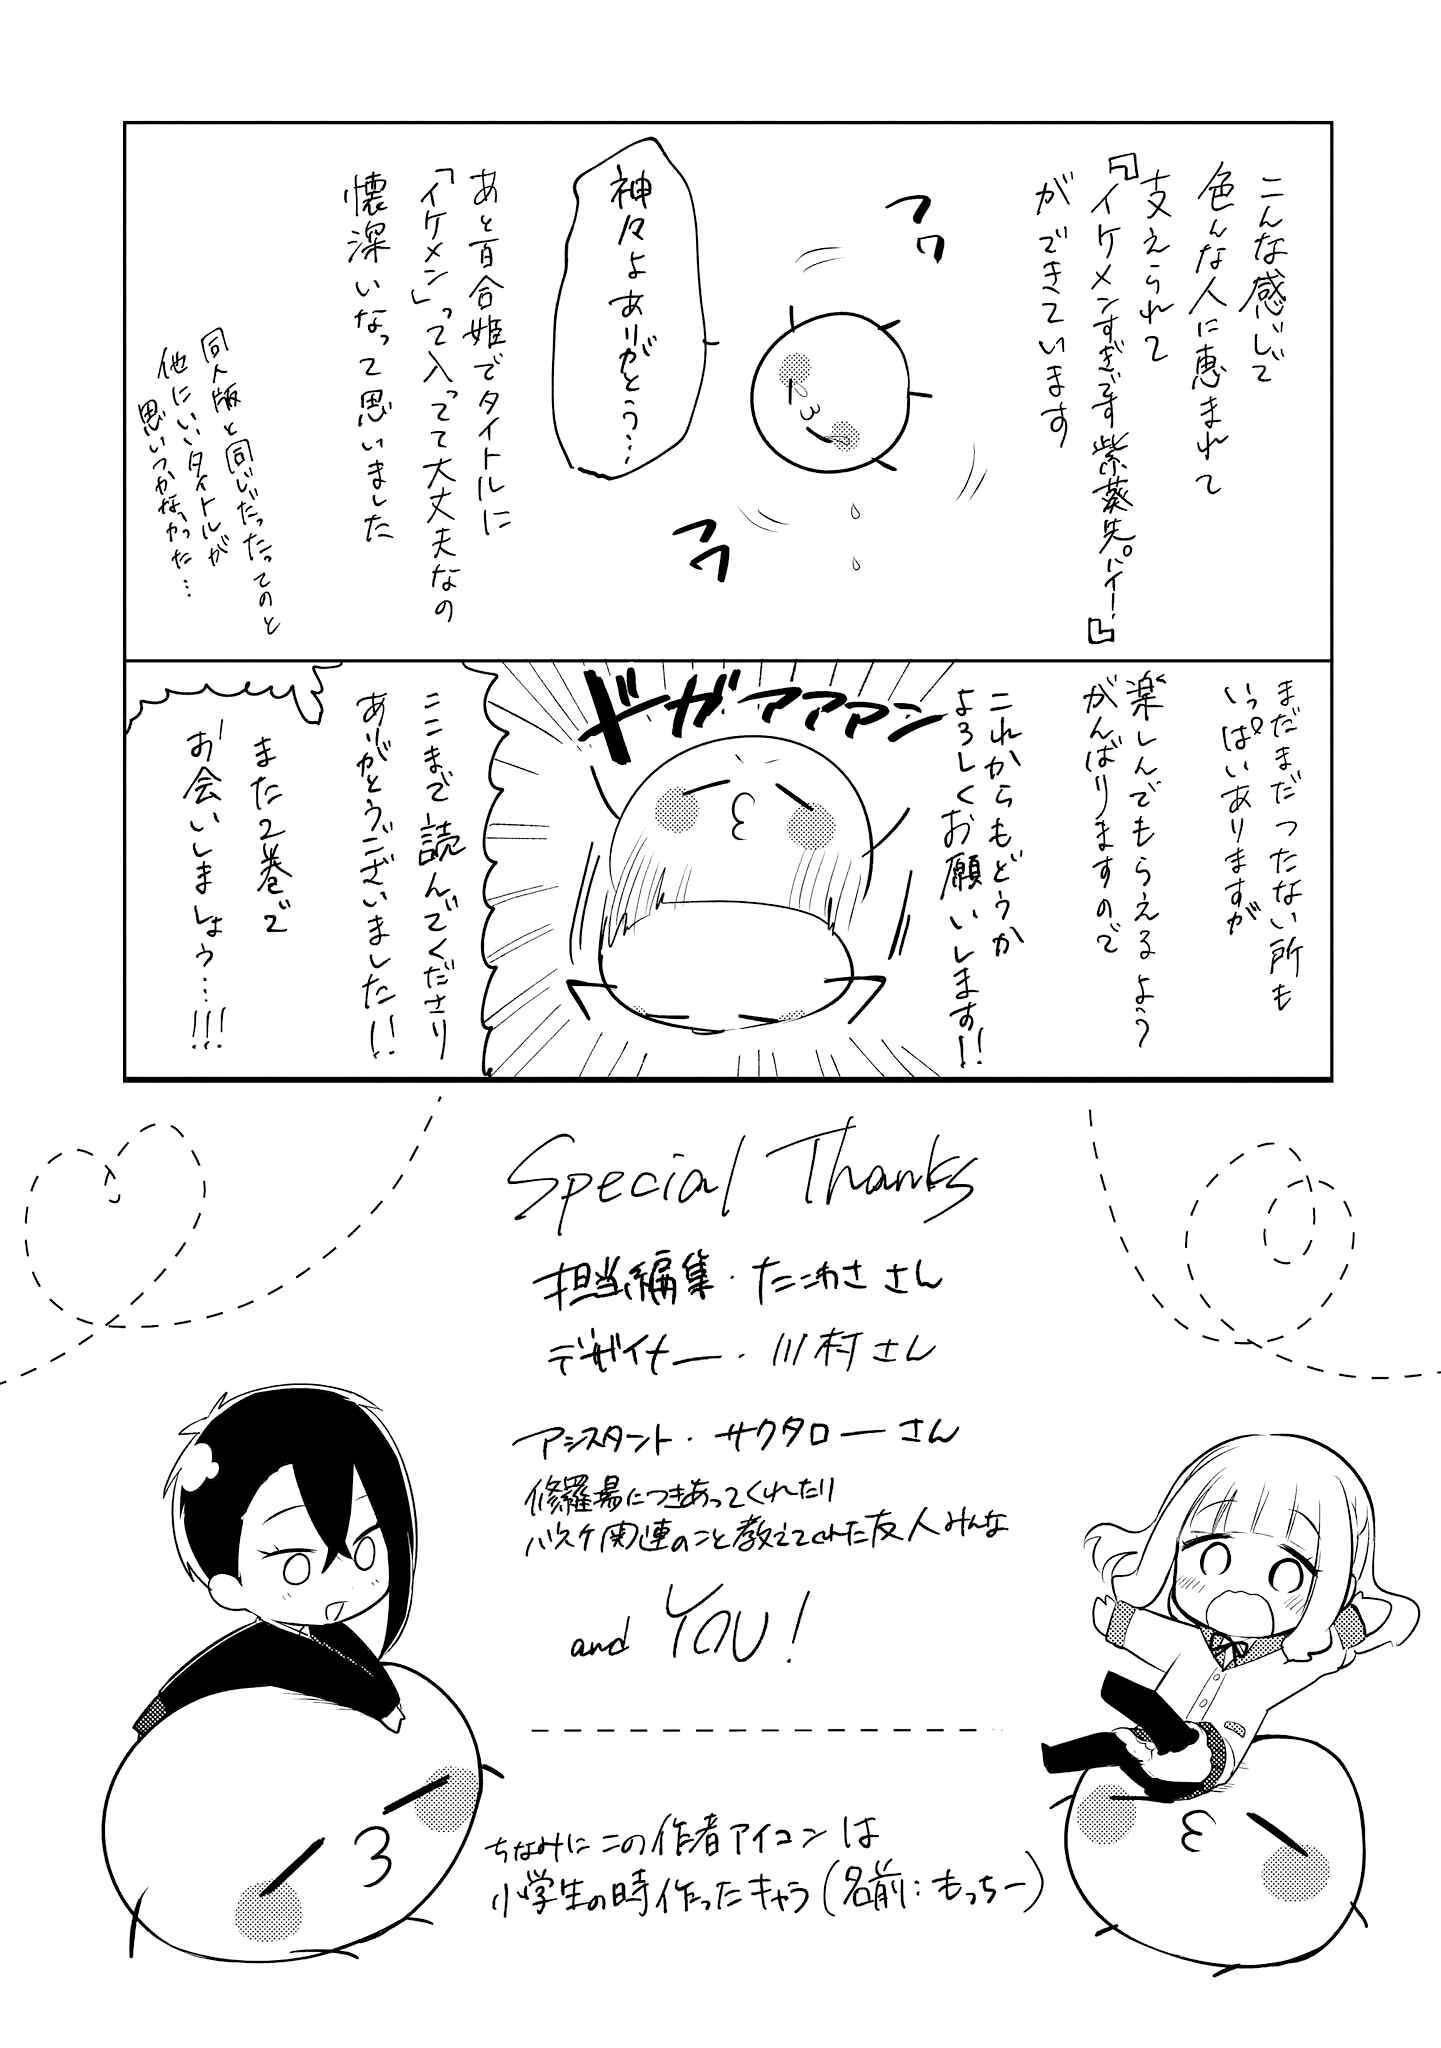 こんな感じで
色んな人に恵まれて
支えられて
『イケメンすぎです紫葵先パイ!』
ができています
フワ
フワ
神々よありがとう…
あと百合姫でタイトルに
「イケメン」って入ってて大丈夫なの
懐深いなって思いました
同人版と同じだったってのと
他にいいタイトルが
思いつかなかった…
まだまだつたない所も
いっぱいありますが
楽しんでもらえるよう
がんばりますので
これからもどうか
よろしくお願いします!!
ドガァァァン
ここまで読んでくださり
ありがとうございました!!
また2巻で
お会いしましょう…!!!
Special Thanks
担当編集・たこわささん
デザイナー・川村さん
アシスタント・サクタローさん
修羅場につきあってくれたり
バスケ関連のこと教えてくれた友人みんな
and YOU!
ちなみにこの作者アイコンは
小学生の時作ったキャラ(名前:もっちー)